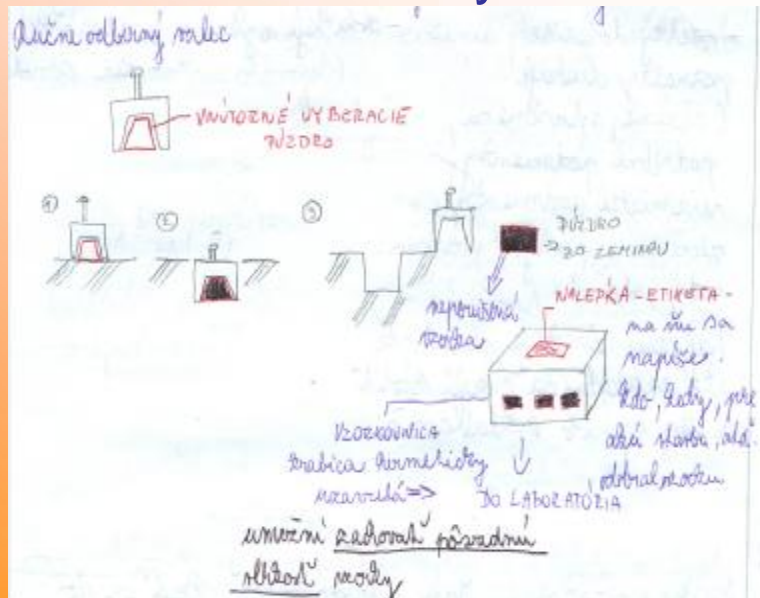 Ručne odberný valec
VNÚTORNÉ VYBERACIE
PÚZDRO
1
2
3
PÚZDRO
SO ZEMINOU
neporušená
vzorka
NÁLEPKA - ETIKETA -
na ňu sa
napíše
kdo, kedy, pre
akú stavbu, atď.
odobral vzorku
VZORKOVNICA
krabica hermeticky
uzavretá =>
DO LABORATÓRIA
umožní zachovať pôvodnú
vlhkosť vzorky